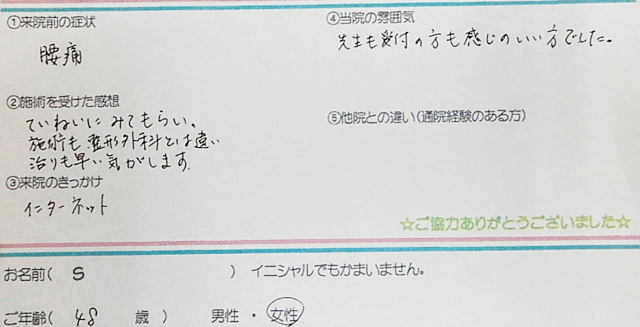 ①来院前の症状
腰痛
②施術を受けた感想
ていねいにみてもらい、
施術も整形外科とは違い
治りも早い気がします。
③来院のきっかけ
インターネット
④当院の雰囲気
先生も受付の方も感じのいい方でした。
⑤他院との違い(通院経験のある方)
☆ご協力ありがとうございました☆
お名前( S ) イニシャルでもかまいません。
ご年齢( 48 歳 ) 男性 ・ 女性